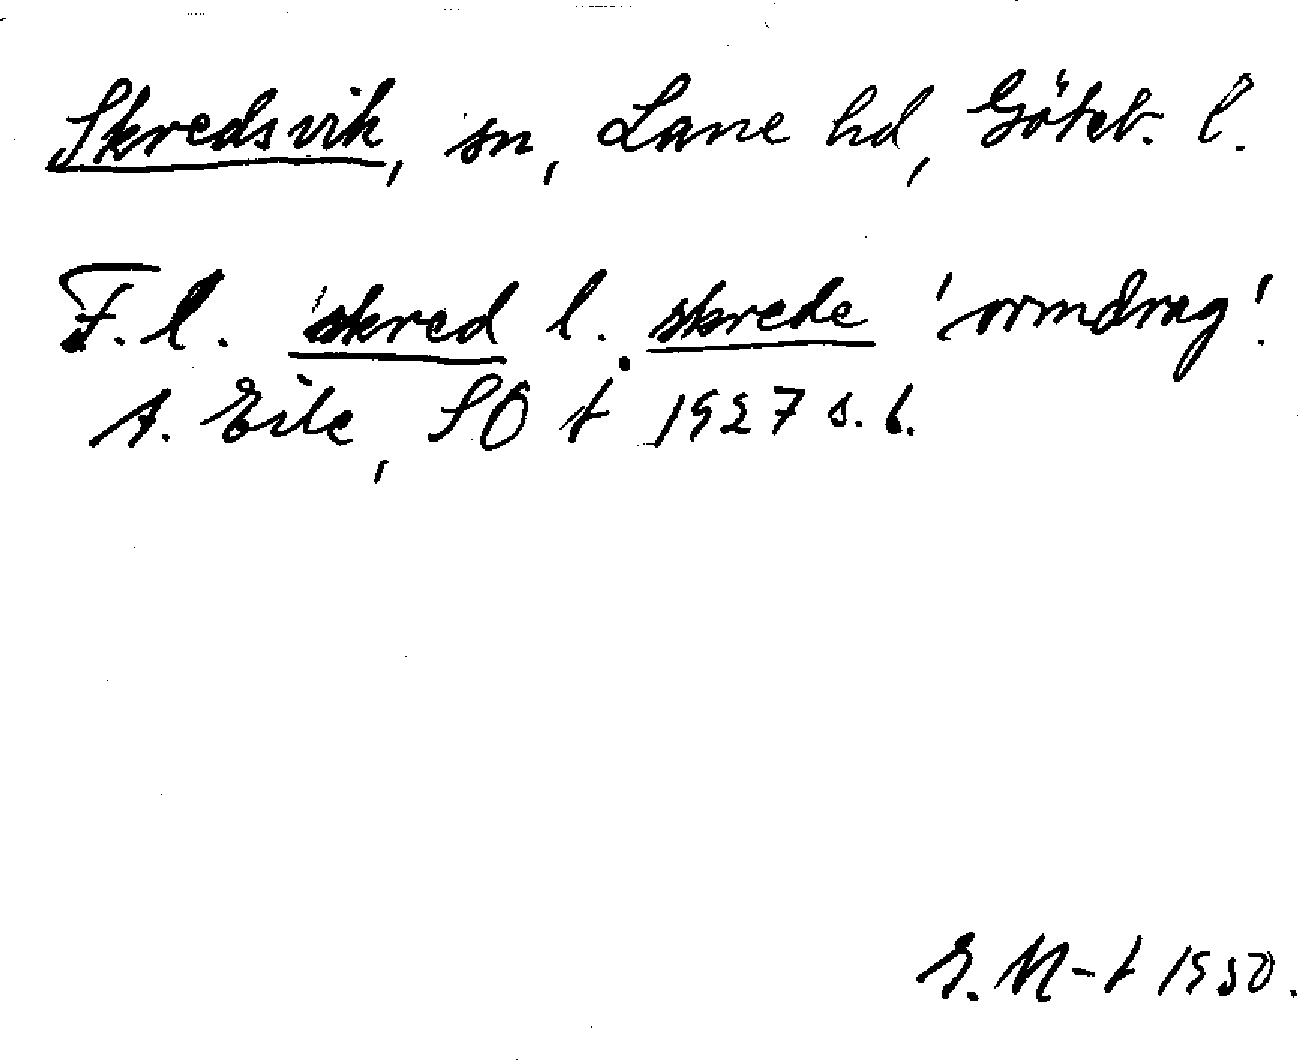 Skredsvik, sn, Lane hd, Göteb. l.
F. l. skred l. skrede 'ormdrag'.
A. Eile, SO t 1927 s. 6.
E. M-t 1950.